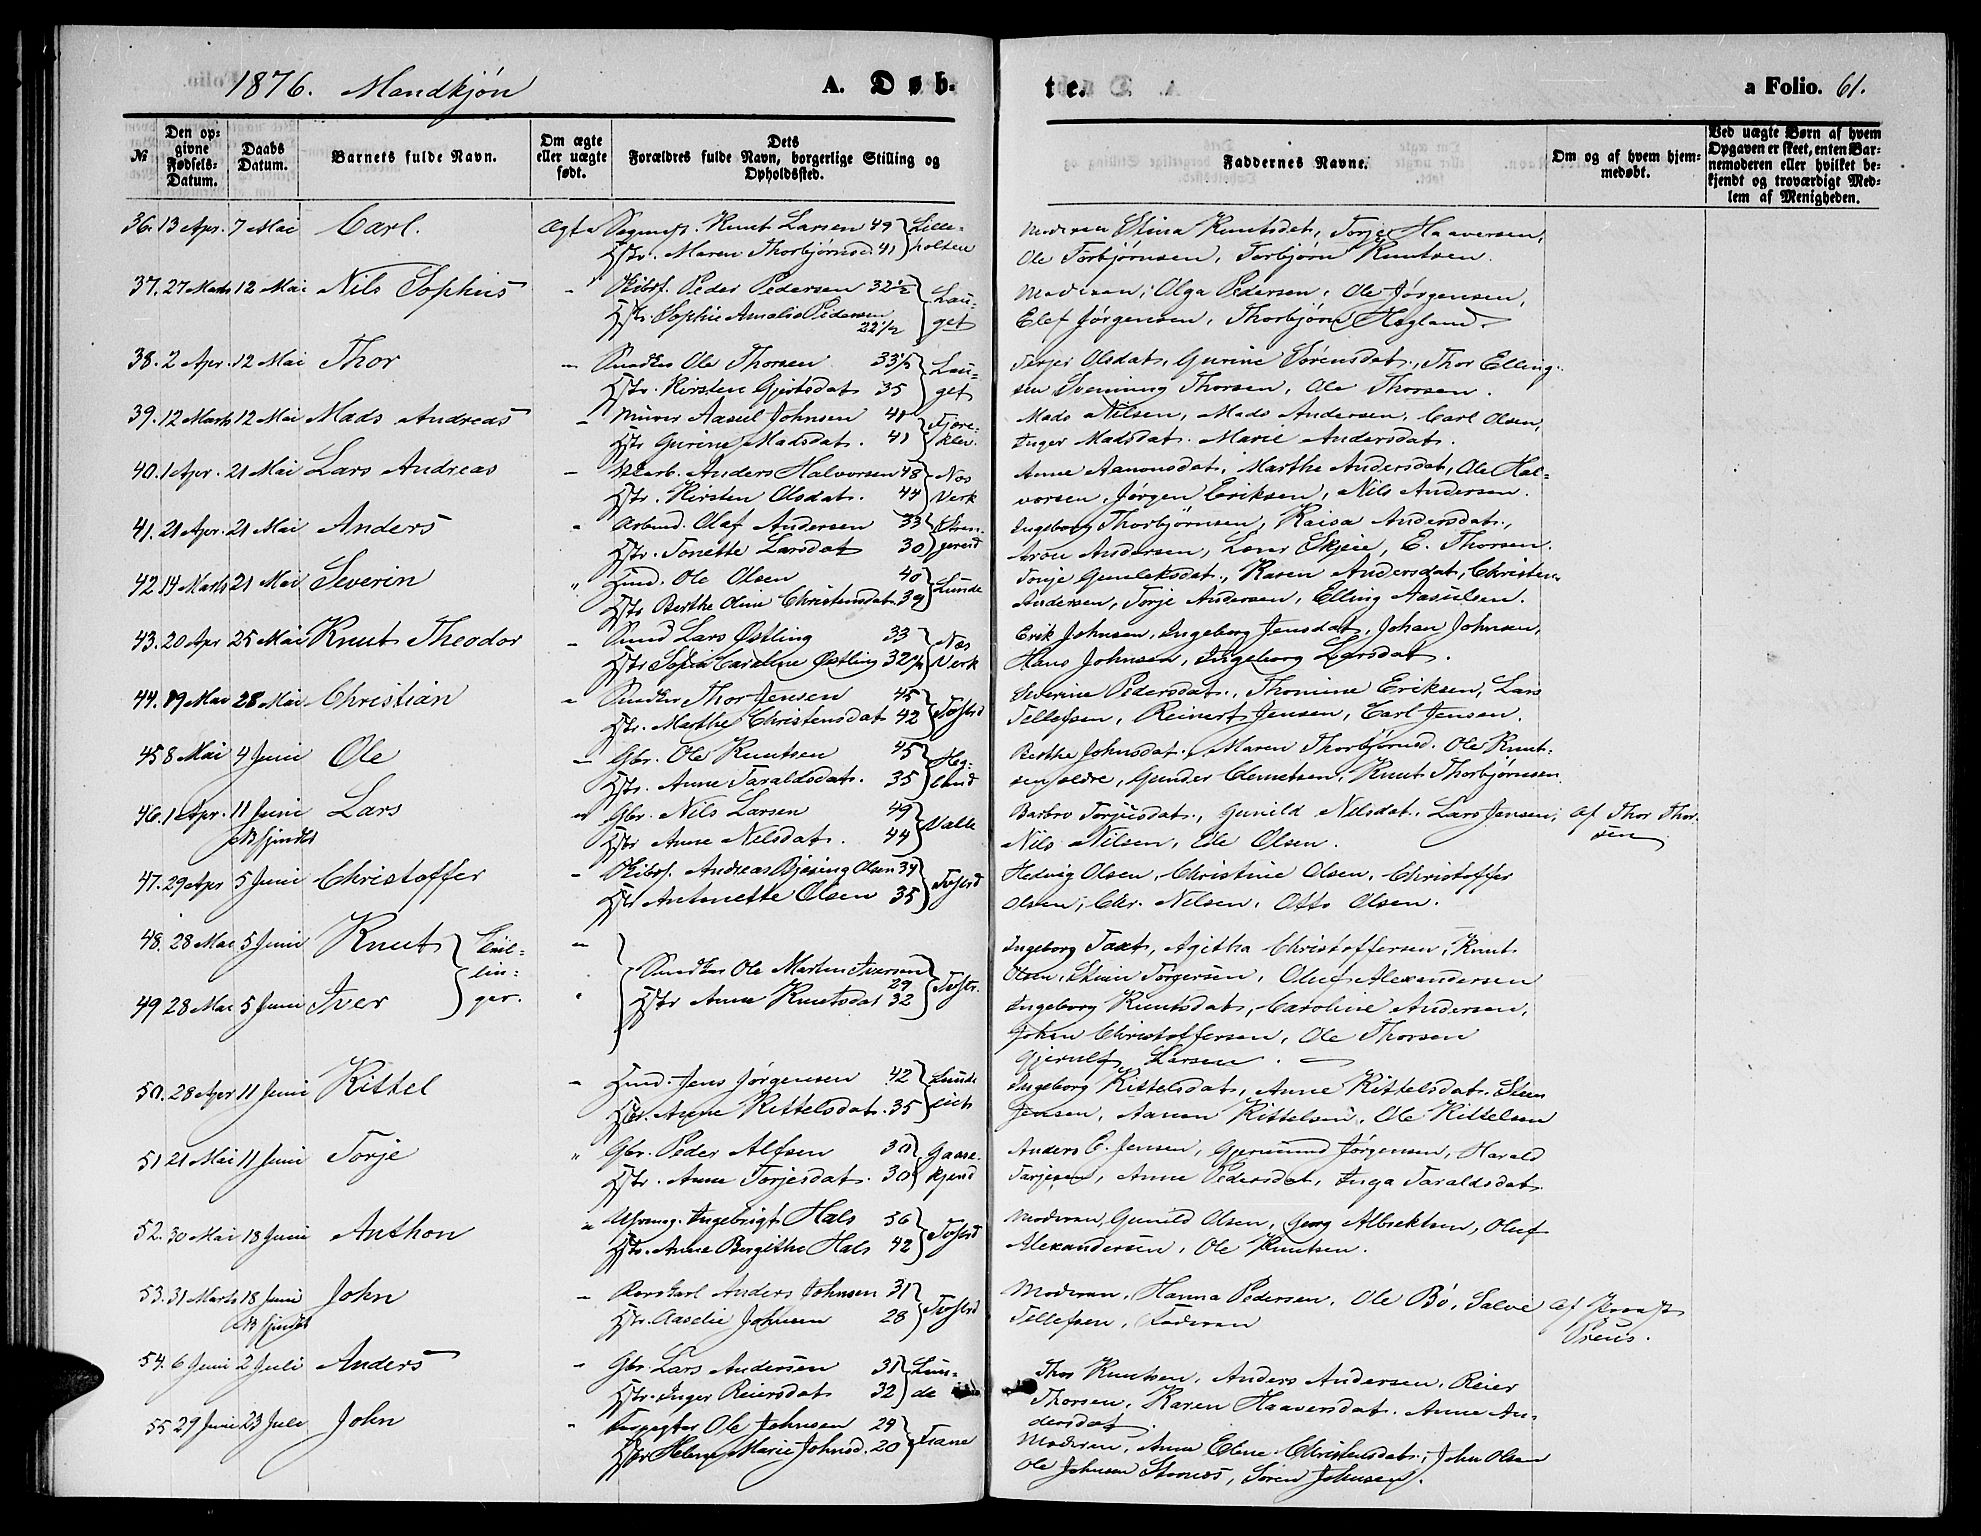 1876. Mandkjøn
A. Døb-
te.
a Folio. 61.
№
Den op-
givne
Fødsels-
Datum.
Daabs
Datum.
Barnets fulde Navn.
Om ægte
eller uægte
født.
Dets
Forældres fulde Navn, borgerlige Stilling og
Opholdssted.
Faddernes Navne.
Om og af hvem hjem-
medøbt.
Ved uægte Børn af hvem
Opgaven er skeet, enten Bar-
nemoderen eller hvilket be-
kjendt og troværdigt Med-
lem af Menigheden.
36. 13 Apr. 7 Mai Carl. Ægte Knut Larsen 49 Lille-
Hstr. Maren Thorbjørnsd 41 holten
Moderen Stina Knutsdat, Torje Haaversen,
Ole Torbjørnsen, Torbjørn Knutsen.
37. 27 Marts 12 Mai Nils Sophus " Skibsf. Peder Pedersen 32½ Lau-
Hstr. Sophie Amalie Pedersen get
22 1/2
Moderen, Olga Pedersen, Ole Jørgensen,
Elef Jørgensen, Thorbjørn Hegland.
38. 2 Apr. 12 Mai Thor — Ole Thorsen 33½ Lau-
Hstr. Kirsten Gjertsdat 35 get
Terjer Olsdat, Gurine Sørensdat., Thor Elling-
sen Svenning Thorsen, Ole Thorsen.
39. 12 Marts 12 Mai Mads Andreas " Murer Aasul Johnsen 41 Fjøre-
Hstr Gurine Madsdat. 41 klev.
Mads Nilsen, Mads Andersen, Carl Olsen,
Inger Madsdat. Marie Andersdat.
40. 1 Apr. 21 Mai Lars Andreas — Anders Halvorsen 48 Næs
Hstr. Kirsten Olsdat. 44 Verk
Anne Aanonsdat, Marthe Andersdat, Ole Hal-
vorsen, Jørgen Eriksen, Nils Andersen.
41. 21 Apr. 21 Mai Anders " Arbmd. Olaf Andersen 33
Hstr. Tonette Larsdat 30
Ingeborg Thorbjørnsen, Kaisa Andersdat.,
Aron Andersen, Lars Skjeie, E. Thorsen.
42 14 Marts 21 Mai Severin " Hmd. Ole Olsen 40 Lunde
Hstr Berthe Oline Christensdat. 39
Torje Gunleksdat., Karen Andersdat, Christen
Andersen, Torje Andersen, Elling Aasulsen.
43. 20 Apr 25 Mai Knut Theodor — Smed Lars Østling 33 Næs
Hstr Sofia Caroline Østling 32½ Verk
Erik Johnsen, Ingeborg Jensdat, Johan Johnsen,
Hans Johnsen, Ingeborg Larsdat.
44. 19 Mai 28 Mai Christian " Thor Jensen 45 Tvstrd
Hstr. Marthe Christensdat 42
Severine Pedersdat., Thomine Eriksen, Lars
Tellefsen, Reinert Jensen, Carl Jensen.
45 8 Mai 4 Juni Ole — Gbr. Ole Knutsen 45 Heg-
Hstr. Anne Taraldsdat. 35 land
Berthe Johnsdat., Maren Thorbjørnsd. Ole Knut-
sen ældre, Gunder Clemetsen, Knut Thorbjørnsen.
46. 1 Apr. 11 Juni Lars " Gbr. Nils Larsen 49 Valle
Hstr Anne Nilsdat. 44
Barbro Torjusdat., Gunild Nilsdat. Lars Jensen, Af Thor Thor-
Nils Nilsen, Ole Olsen. sen
47. 29 Apr 5 Juni Christoffer " Skibsf. Andreas Olsen 34 Tvstrd
Hstr Antonette Olsen 35
Hedvig Olsen, Christine Olsen, Christoffer
Olsen, Chr. Nilsen, Otto Olsen.
48. 28 Mai 5 Juni Knut Tvil- "
lin-
ger.
Ole Martin Iversen Tvstr.
29
Hstr Anne Knutsdat 32
Ingeborg Taxt, Agitha Christoffersen, Knut
Olsen, Torgersen, Oluf Alexandersen
49 28 Mai 5 Juni Iver "
Ingeborg Knutsdat, Caroline Andersen,
Johan Christoffersen, Ole Thorsen
Gjerulf Larsen.
50. 28 Apr 11 Juni Kittel " Hmd. Jens Jørgensen 42 Lunde
Hstr. Anne Kittelsdat. 35
Ingeborg Kittelsdat, Anne Kittelsdat.
Jensen, Aanon Kittelsen, Ole Kittelsen
51 21 Mai 11 Juni Torje " Gbr. Peder Alfsen 30 Gaase-
Hstr. Anne Torjesdat. 30 kjend
Anders C. Jensen, Gjermund Jørgensen, Harald
Tarjesen, Anne Pedersdat, Inga Taraldsdat.
52. 30 Mai 18 Juni Anthon " Ingebrigt Hals 56 Tvstrd
Hstr. Anne Bergithe Hals 42
Moderen, Gunild Olsen, Georg Albrektsen, Oluf
Alexandersen, Ole Knutsen.
53. 31 Marts 18 Juni John — Anders Johnsen 31 Tvstrd
Hstr. Aaselie Johnsen 28
Moderen, Hanna Pedersen, Ole Bö, Salve Af Provst
Tellefsen, Faderen Preus.
54. 6 Juni 2 Juli Anders " Gbr. Lars Andersen 31 Lun-
Hstr. Inger Reiersdat 32 de
Thor Knutsen, Anders Andersen, Reier
Thorsen, Karen Haaversdat. Anne An-
dersdat
55 29 Juni 23 Juli John " Forpagter Ole Johnsen 24 Trane
Hstr Helene Marie Johnsd. 20
Moderen, Anne Elene Christensdat, John Olsen
Ole Johnsen, Søren Johnsen.